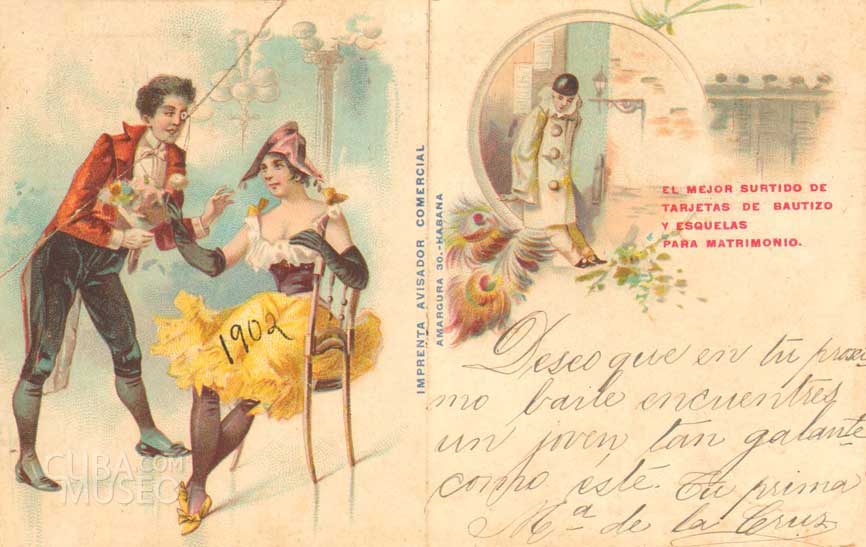 1902
CUBA.com
MUSEO
IMPRENTA AVISADOR COMERCIAL
AMARGURA 30.-HABANA
EL MEJOR SURTIDO DE
TARJETAS DE BAUTIZO
Y ESQUELAS
PARA MATRIMONIO.
Deseo que en tu proxi-
mo baile encuentres
un joven tan galante
como esté. Tu prima
Mª de la Cruz